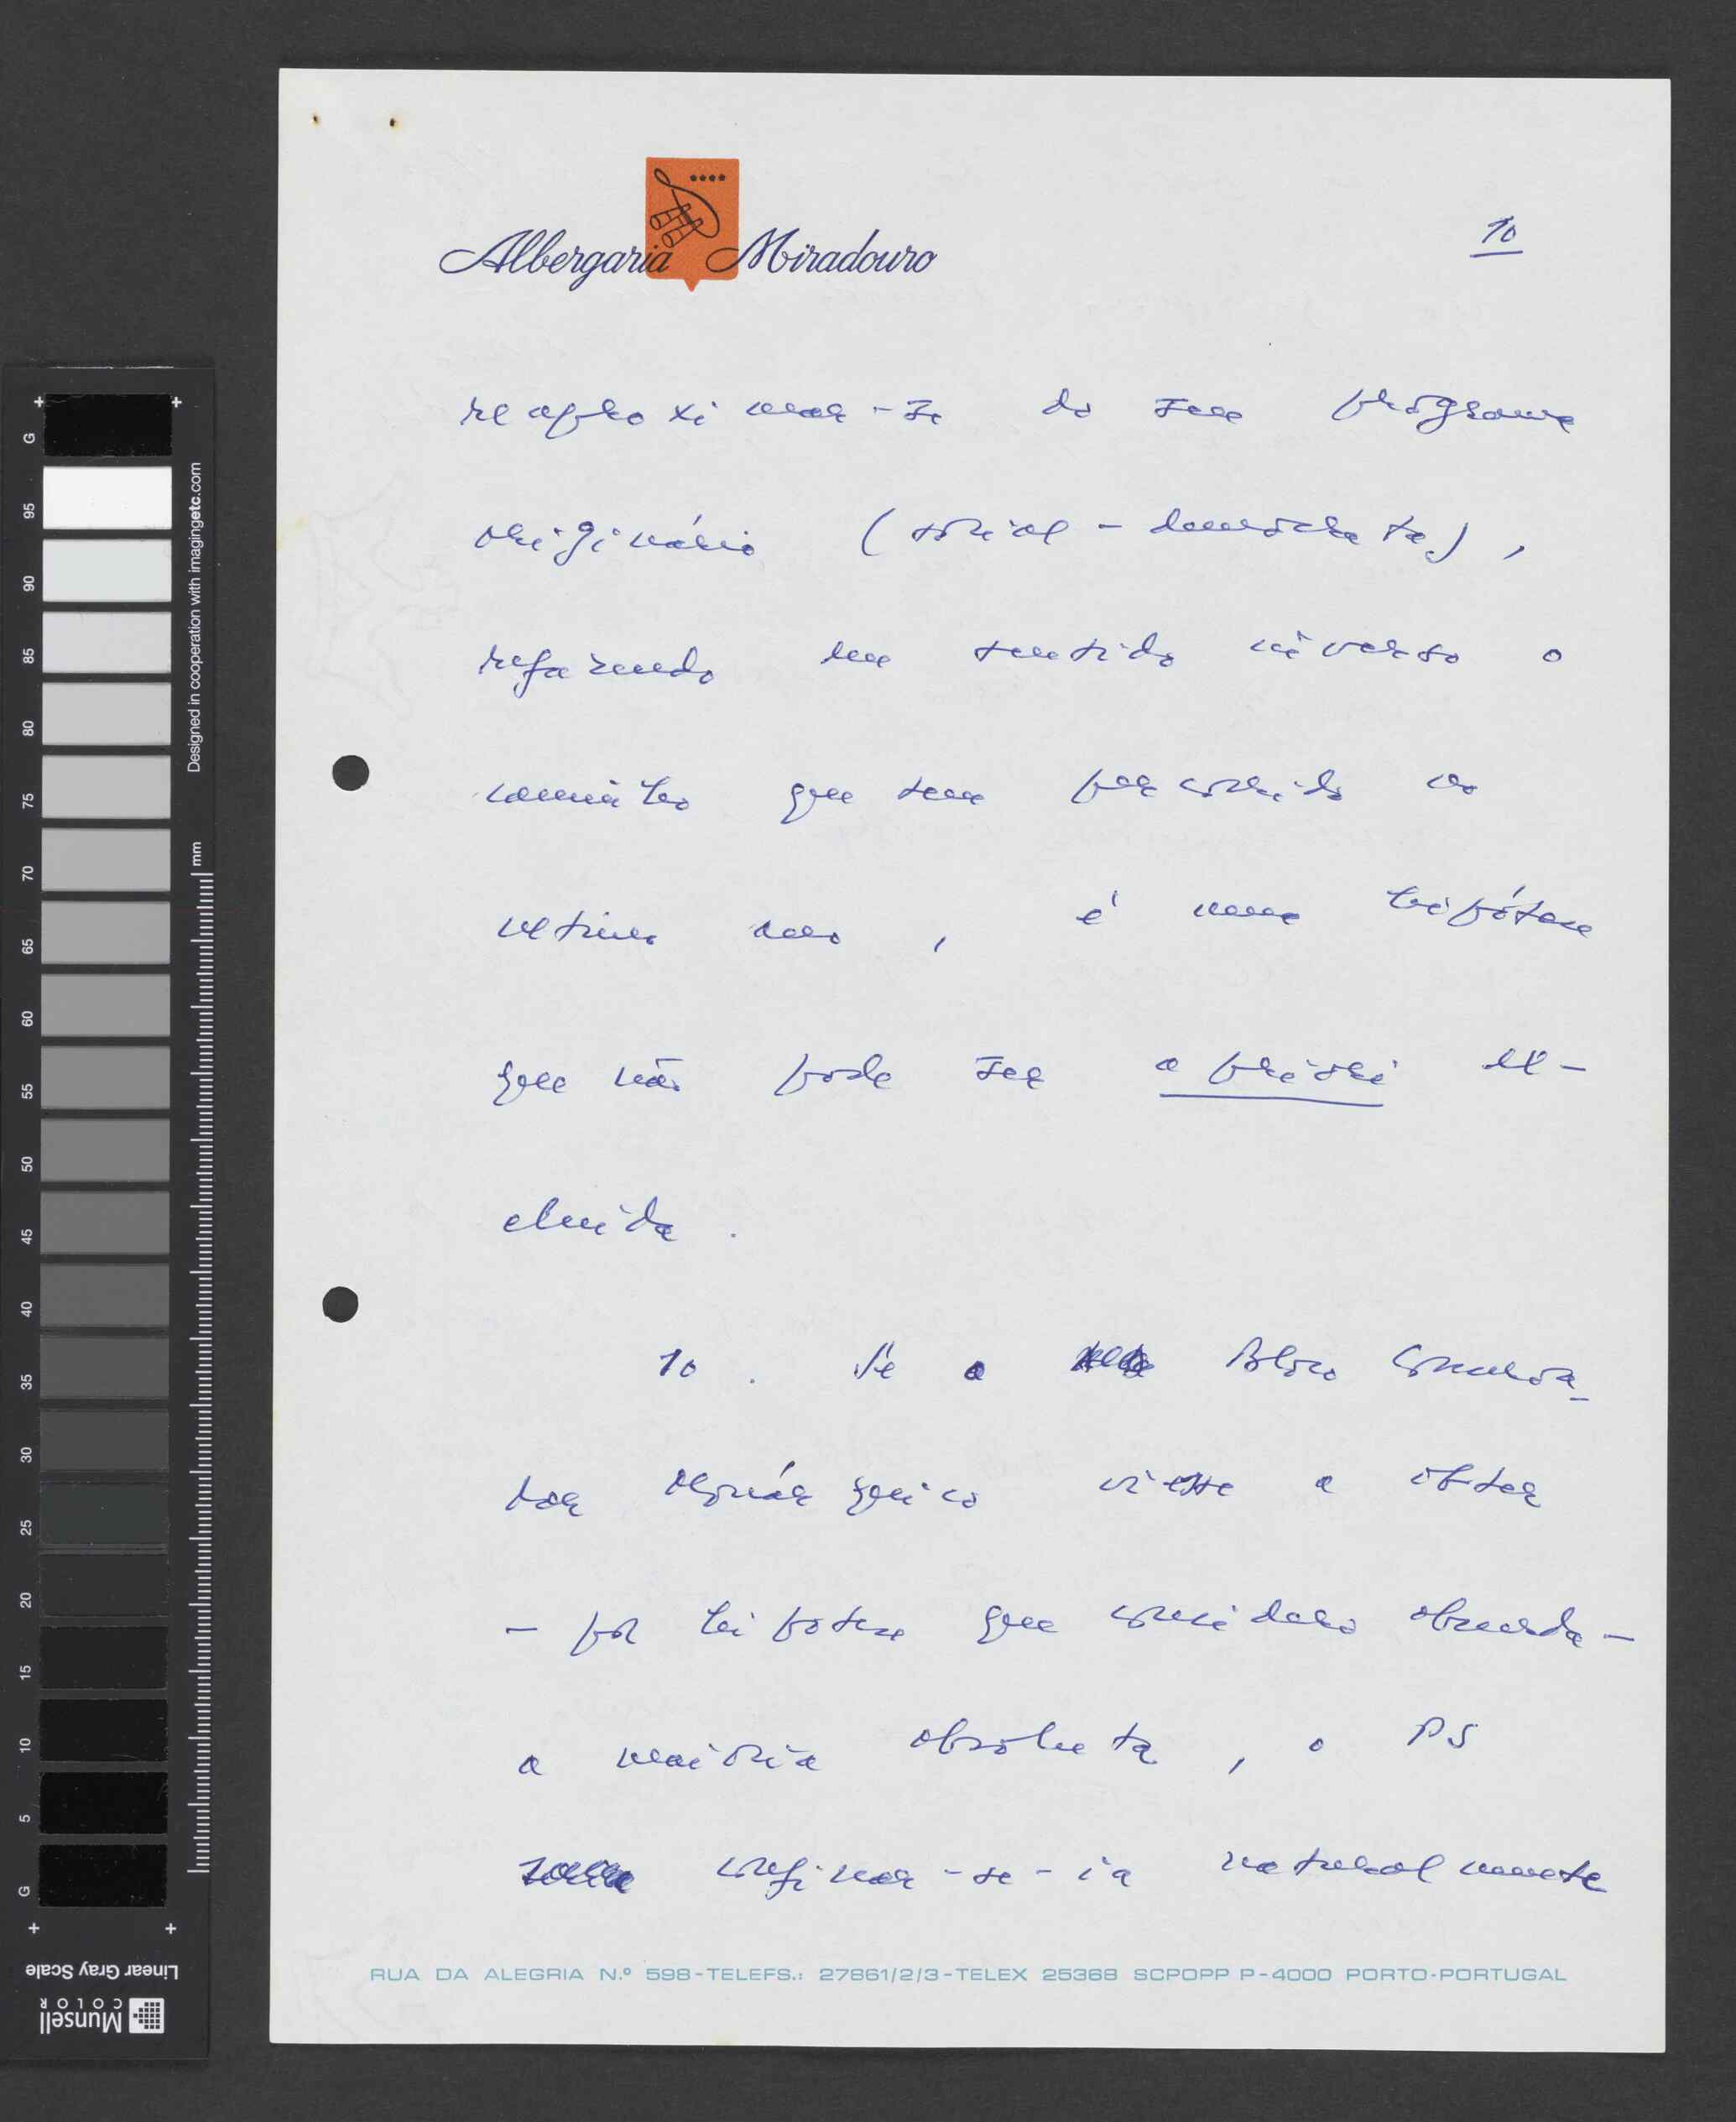 Albergaria Miradouro
10
reaproximar-se do seu programa
originário (social-democrata),
refazendo em sentido inverso o
caminho que tem percorrido no
ultimo ano, é uma hipótese
que não pode ser a priori ex-
cluida.
10. Se o Bloco Conserva-
dor Oligárquico viesse a obter
- por hipotese que considero absurda -
a maioria absoluta, o PS
confinar-se-ia naturalmente
RUA DA ALEGRIA N.º 598-TELEFS.: 27861/2/3-TELEX 25368 SCPOPP P-4000 PORTO-PORTUGAL
G
95
90
85
80
75
70
65
60
55
50
45
40
35
30
25
20
15
10
5
G
Designed in cooperation with imagingetc.com
mm
Linear Gray Scale
Munsell
COLOR